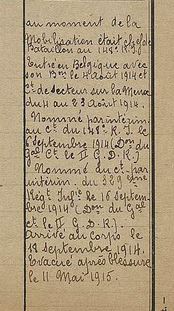 au moment de la
Mobilisation était chef de
Bataillon au 148e R.I.
Entré en Belgique avec
son Bon le 4 août 1914 et
Ct de secteur sur la Meuse
du 4 au 23 Août 1914.
Nommé par intérim
au Ct du 148e R.I. le
6 septembre 1914 (Don du
Gal Ct le II G.D.R.)
Nommé du ct par
intérim. du 289ème
Régt Infie le 16 septem-
bre 1914 (Don du Gal
ct le II. G.D.R.)
Arrivé au Corps le
18 septembre 1914.
Evacué après blessure
le 11 Mai 1915.